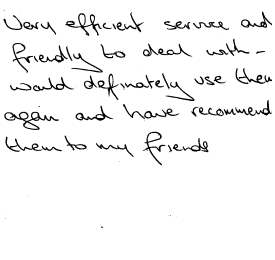 Very efficient service and
friendly to deal with -
would definately use them
again and have recommend
them to my friends